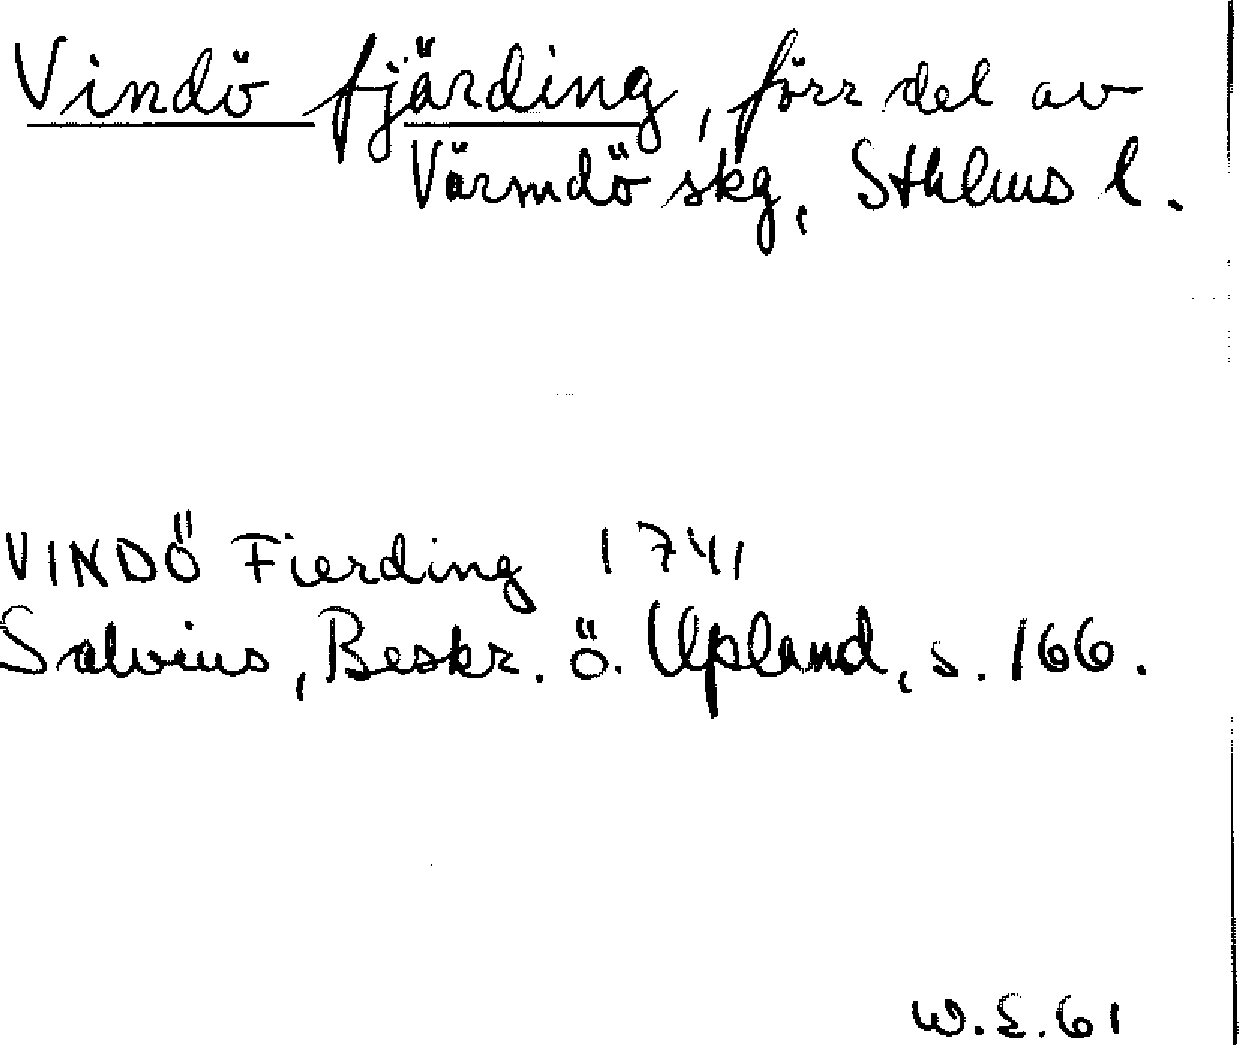 Vindö fjärding, förr del av
Värmdö skg, Sthlms l.
VINDÖ Fierding 1741
Salvius, Beskr. ö. Upland, s. 166.
W.E.61